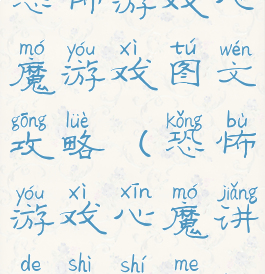 恐怖游戏心
mó yóu xì tú wén
魔游戏图文
gōng lüè kǒng bù
攻略(恐怖
yóu xì xīn mó jiǎng
游戏心魔讲
de shì shí me